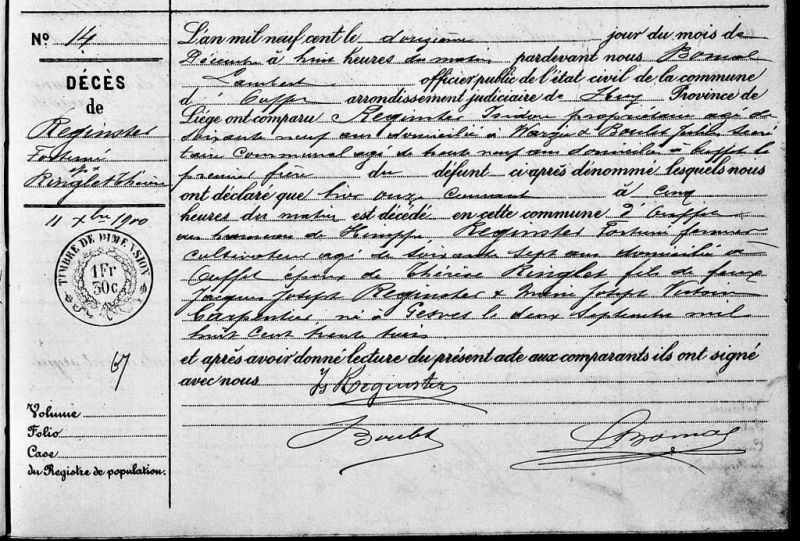 N° 14
DÉCÈS
de
Reginster
Fortuné
épx
Ringlet Thérèse
11 Xbre 1900
TIMBRE DE DIMENSION
1 Fr
30c.
67
Volume
Folio
Case
du Registre de population.
L'an mil neuf cent le douzième jour du mois de
Décembre à huit heures du matin pardevant nous Bomal
Lambert officier public de l'état civil de la commune
d'Ouffet arrondissement judiciaire de Huy Province de
Liége ont comparu Reginster Isidore propriétaire agé de
soixante neuf ans domicilié à Warzée & Boulet Jules secré
taire communal agé de trente neuf ans domicilié à Ouffet le
premier frère du défunt ci après dénommé lesquels nous
ont déclaré que hier onze courant à cinq
heures du matin est décédé en cette commune d'Ouffet
au hameau de Hemppe Reginster Fortuné fermier
cultivateur agé de soixante sept ans domicilié à
Ouffet époux de Thérèse Ringlet fils de feux
Jacques Joseph Reginster & Marie Joseph Victoire
Carpentier né à Gesves le deux Septembre mil
huit cent trente trois
et après avoir donné lecture du présent acte aux comparants ils ont signé
avec nous Is Reginster
Boulet LBomal